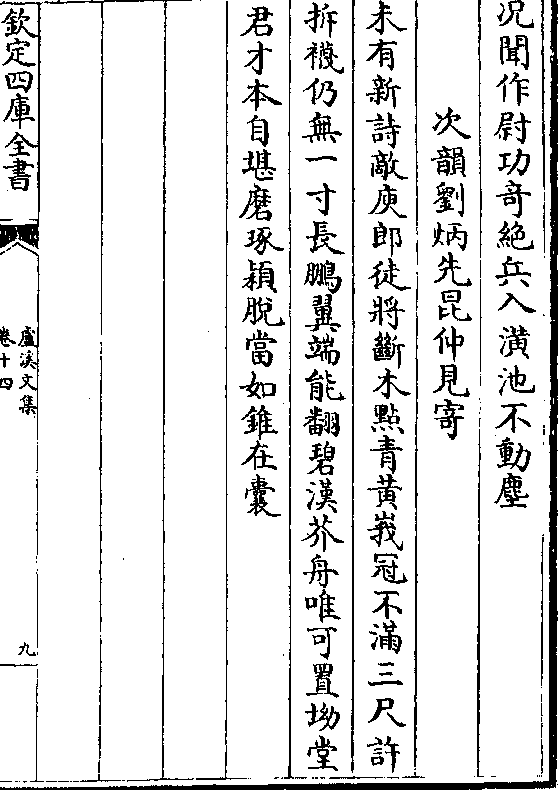 况聞作尉功竒絶兵入潢池不動塵
次韻劉炳先昆仲見寄
未有新詩敵庾郎徒將斷木㸃青黄峩冠不滿三尺許
拆襪仍無一寸長鵬翼端能翻碧漢芥舟唯可置坳堂
君才本自堪磨琢穎脫當如錐在囊
欽定四庫全書
盧溪文集
卷十四
九